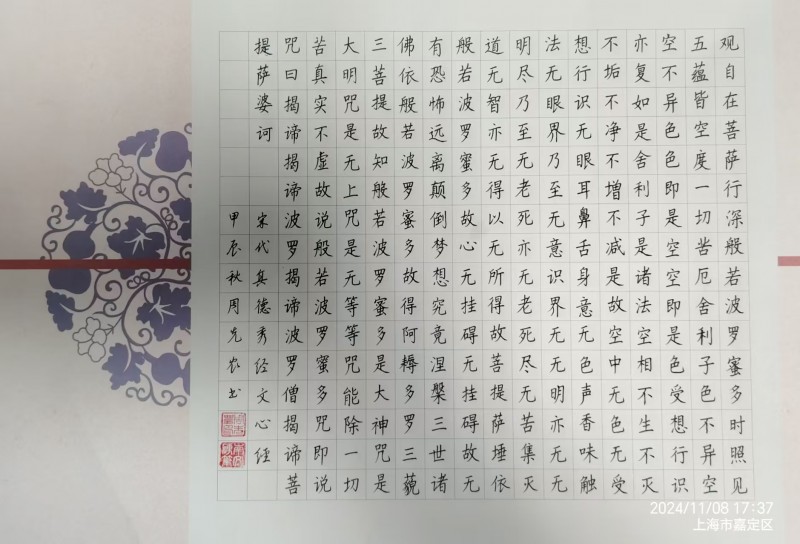 观自在菩萨行深般若波罗蜜多时照见
五蕴皆空度一切苦厄舍利子色不异空
空不异色色即是空空即是色受想行识
亦复如是舍利子是诸法空相不生不灭
不垢不净不增不减是故空中无色无受
想行识无眼耳鼻舌身意无色声香味触
法无眼界乃至无意识界无无明亦无无
明尽乃至无老死亦无老死尽无苦集灭
道无智亦无得以无所得故菩提萨埵依
般若波罗蜜多故心无挂碍无挂碍故无
有恐怖远离颠倒梦想究竟涅槃三世诸
佛依般若波罗蜜多故得阿耨多罗三藐
三菩提故知般若波罗蜜多是大神咒是
大明咒是无上咒是无等等咒能除一切
苦真实不虚故说般若波罗蜜多咒即说
咒曰揭谛揭谛波罗揭谛波罗僧揭谛菩
提萨婆诃 宋代真德秀经文心经
甲辰秋周农书
2024/11/08 17:37
上海市嘉定区